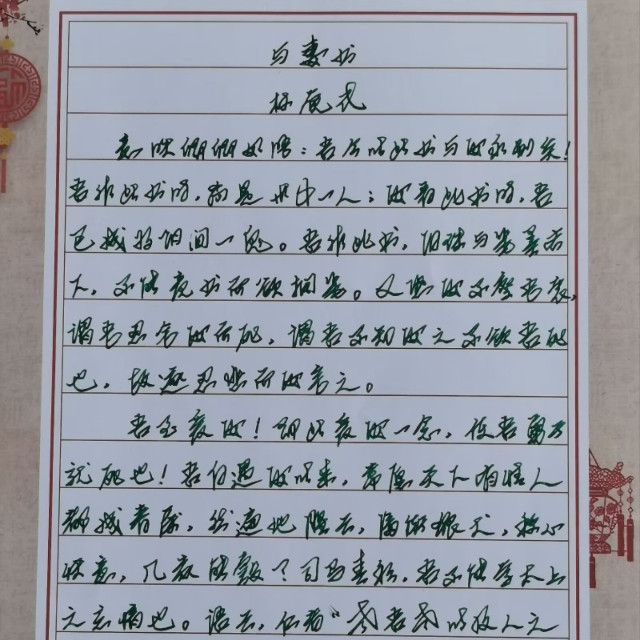 与妻书
林觉民
意映卿卿如晤：吾今以此书与汝永别矣！
吾作此书时，尚是世中一人；汝看此书时，吾
已成为阴间一鬼。吾作此书，泪珠与笔墨齐
下，不能竟书而欲搁笔。又恐汝不察吾衷，
谓吾忍舍汝而死，谓吾不知汝之不欲吾死
也，故遂忍悲为汝言之。
吾至爱汝！即此爱汝一念，使吾勇于
就死也！吾自遇汝以来，常愿天下有情人
都成眷属，然遍地腥云，满街狼犬，称心
快意，几家能彀？司马春衫，吾不能学太上
之忘情也。语云，仁者"老吾老以及人之